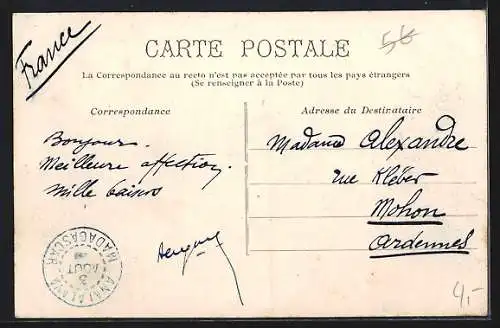 France
56
CARTE POSTALE
La Correspondance au recto n'est pas acceptée par tous les pays étrangers
(Se renseigner à la Poste)
Correspondance
Adresse du Destinataire
Bonjour.
Meilleure affection.
Mille baisers
Madame Alexandre
rue Kléber
Mohon
Ardennes
ANALALAVA
MADAGASCAR
3
AOUT
4,-